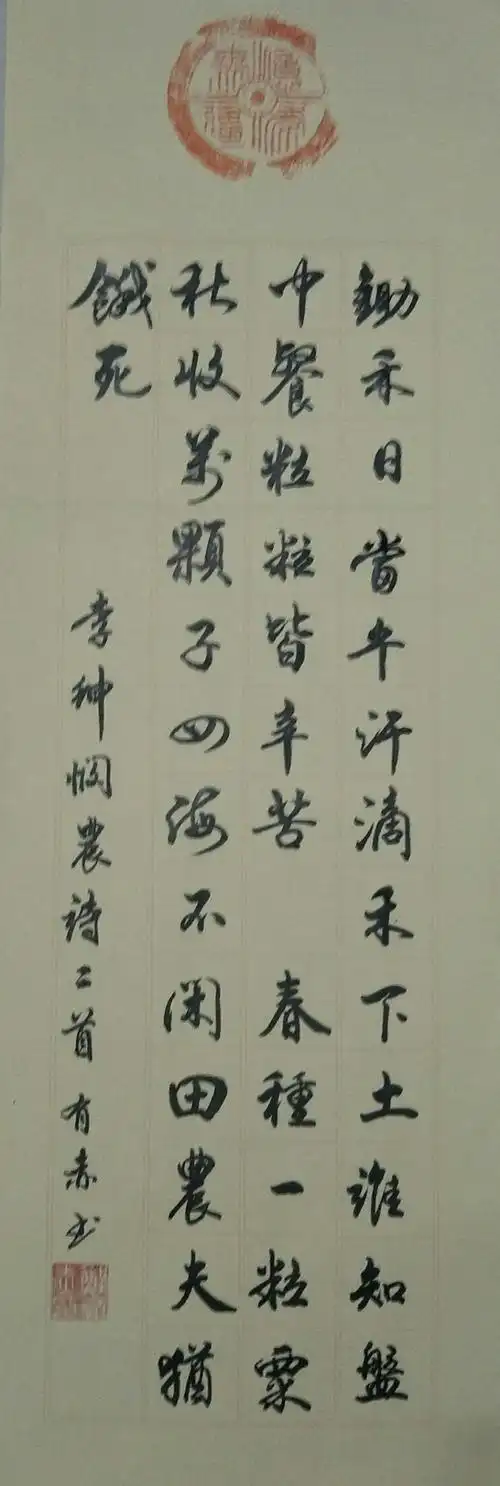 鋤禾日當午汗滴禾下土誰知盤
中餐粒粒皆辛苦 春種一粒粟
秋收萬顆子四海不閑田農夫猶
餓死
李紳憫農詩二首有赤书